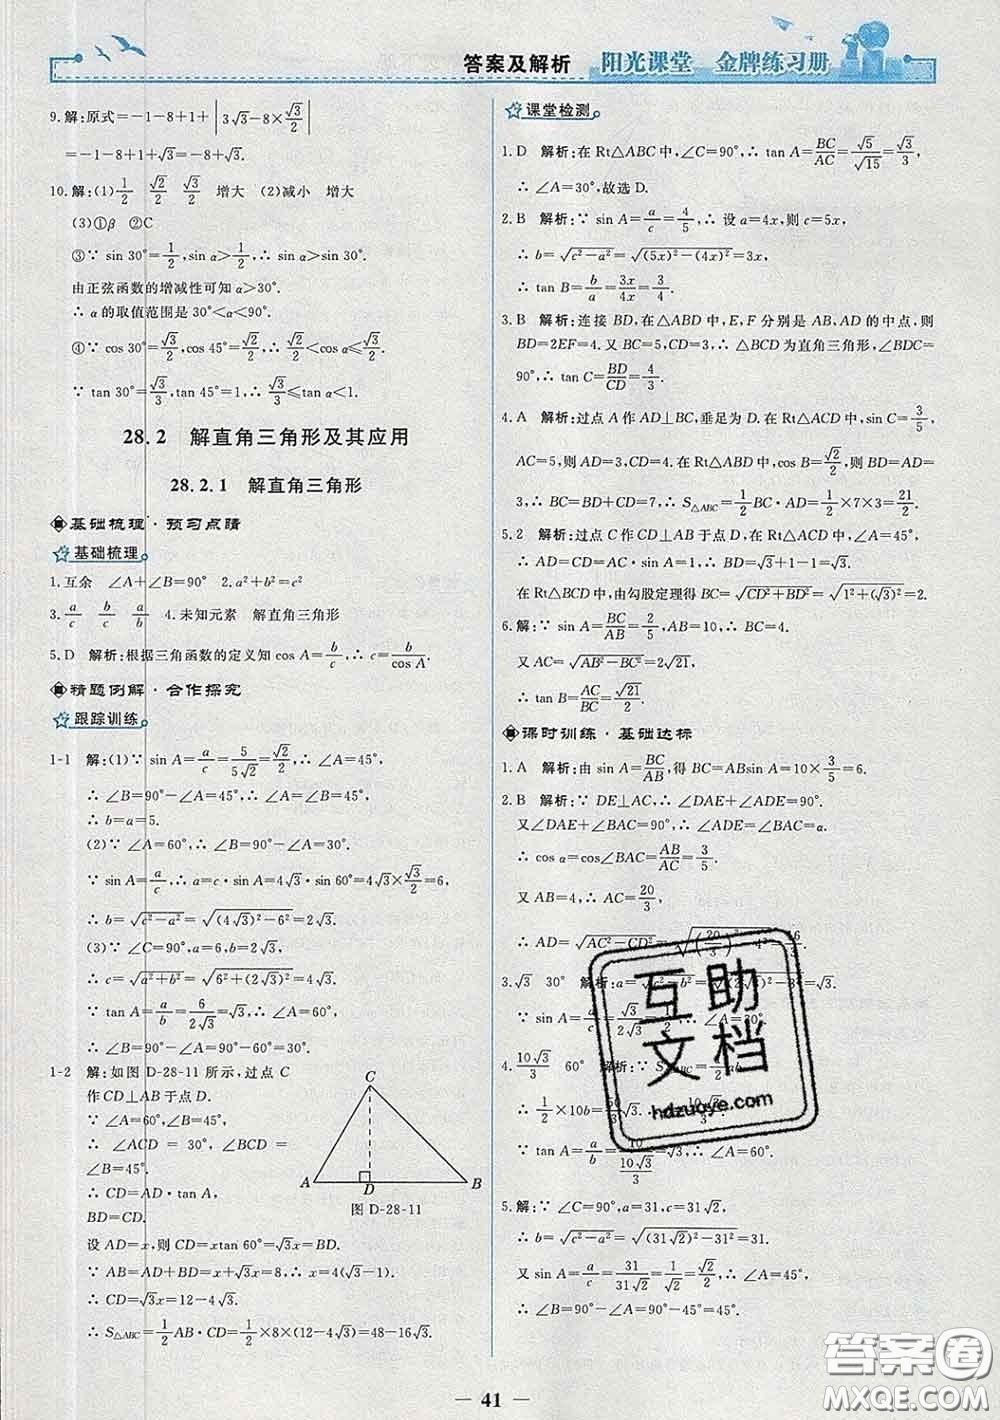 答案及解析 阳光课堂 金牌练习册
9.解:原式=-1-8+1+|3√3-8×√3/2|
=-1-8+1+√3=-8+√3.
10.解:(1)1/2 √2/2 √3/2 增大 (2)减小 增大
(3)①β ②C
③∵ sin 30°=1/2,sin α>1/2,∴ sin α>sin 30°.
由正弦函数的增减性可知 α>30°.
∴ α的取值范围是 30°<α<90°.
④∵ cos 30°=√3/2,cos 45°=√2/2,∴ √2/2<cos α≤√3/2.
∵ tan 30°=√3/3,tan 45°=1,∴ √3/3≤tan α<1.
28.2 解直角三角形及其应用
28.2.1 解直角三角形
基础梳理·预习点睛
基础梳理
1.互余 ∠A+∠B=90° 2.a²+b²=c²
3.a/c b/c a/b 4.未知元素 解直角三角形
5.D 解析:根据三角函数的定义知 cos A=b/c,∴ c=b/cos A.
精题例解·合作探究
跟踪训练
1-1 解:(1)∵ sin A=a/c=5/5√2=√2/2,∴ ∠A=45°,
∴ ∠B=90°-∠A=45°,∴ ∠A=∠B=45°,
∴ b=a=5.
(2)∵ ∠A=60°,∴ ∠B=90°-∠A=30°.
∵ sin A=a/c,∴ a=c·sin A=4√3·sin 60°=4√3×√3/2=6,
∴ b=√(c²-a²)=√((4√3)²-6²)=2√3.
(3)∵ ∠C=90°,a=6,b=2√3,
∴ c=√(a²+b²)=√(6²+(2√3)²)=4√3.
∵ tan A=a/b=6/2√3=√3,∴ ∠A=60°,
∴ ∠B=90°-∠A=90°-60°=30°.
1-2 解:如图 D-28-11 所示,过点 C
作 CD⊥AB 于点 D.
∵ ∠A=60°,∠B=45°,
∴ ∠ACD = 30°,∠BCD =
∠B=45°.
∴ CD=AD·tan A,
BD=CD.
C
A D B
图 D-28-11
设 AD=x,则 CD=xtan 60°=√3x=BD.
∵ AB=AD+BD=x+√3x=8,∴ x=4√3-4.
∴ CD=√3x=12-4√3.
∴ S△ABC=1/2AB·CD=1/2×8×(12-4√3)=48-16√3.
课堂检测
1.D 解析:在 Rt△ABC 中,∠C=90°,∴ tan A=BC/AC=√5/√15=√3/3,
∴ ∠A=30°,故选 D.
2.B 解析:∵ sin A=a/c=4/5,∴ 设 a=4x,则 c=5x,
∴ b=√(c²-a²)=√((5x)²-(4x)²)=3x,
∴ tan B=b/a=3x/4x=3/4.
3.B 解析:连接 BD,在△ABD 中,E,F 分别是 AB,AD 的中点,则
BD=2EF=4.又 BC=5,CD=3,∴ △BCD 为直角三角形,∠BDC=
90°,∴ tan C=BD/CD=4/3.
4.A 解析:过点 A 作 AD⊥BC,垂足为 D.在 Rt△ACD 中,sin C=3/5,
AC=5,则 AD=3,∴ CD=4.在 Rt△ABD 中,cos B=√2/2,则 BD=AD=
3,∴ BC=BD+CD=7,∴ S△ABC=1/2BC·AD=1/2×7×3=21/2.
5.2 解析:过点 C 作 CD⊥AB 于点 D,在 Rt△ACD 中,∠A=45°,
∴ AD=CD=AC·sin A=√2×√2/2=1.∴ BD=√3+1-1=√3.
在 Rt△BCD 中,由勾股定理得 BC=√(CD²+BD²)=√(1²+(√3)²)=2.
6.解:∵ sin A=BC/AB=2/5,AB=10,∴ BC=4.
又 AC=√(AB²-BC²)=2√21,
∴ tan B=AC/BC=√21/2.
课时训练·基础达标
1.A 解析:由 sin A=BC/AB,得 BC=ABsin A=10×3/5=6.
2.B 解析:∵ DE⊥AC,∴ ∠DAE+∠ADE=90°.
又∠DAE+∠BAC=90°,∴ ∠ADE=∠BAC=α.
∴ cos α=cos∠BAC=AB/AC=3/5.
又 AB=4,∴ AC=20/3.
∴ AD=√(AC²-CD²)=√((20/3)²-4²)=16/3.
3.√3 30° 解析:a=√3.
∵ sin A= ∠A=30°.
4.10√3/3 60° 解析:∵ S△ABC
∴ 1/2×10b= 10√3/3.
∵ tan A=a/b=10/(10√3/3)=√3,∴ ∠A=60°.
5.解:∵ ∠C=90°,a=31,c=31√2,
∴ b=√(c²-a²)=√((31√2)²-31²)=31.
又 sin A=a/c=31/31√2=1/√2=√2/2,∴ ∠A=45°,
∴ ∠B=90°-∠A=90°-45°=45°.
互助
文档
hdzuoye.com
答案圈
MXQE.COM
— 41 —